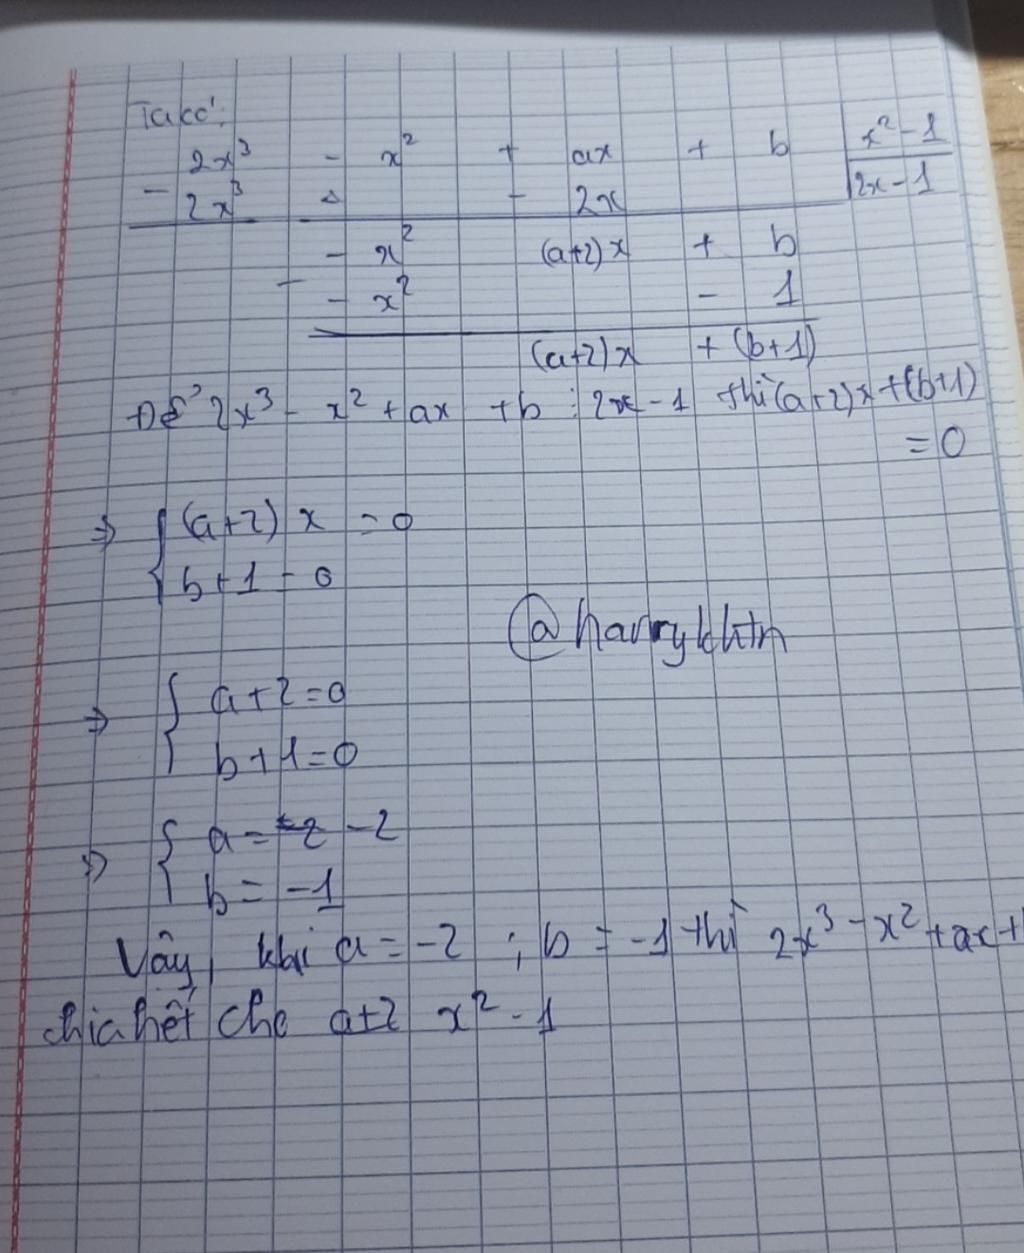 Ta có:
2x³ - x² + ax + b | x² - 1
- 2x³ - 2x | 2x - 1
- x² (a+2)x + b
- - x² - 1
(a+2)x + (b+1)
Để 2x³ - x² + ax + b ⋮ 2x - 1 thì (a+2)x + (b+1)
= 0
⇒ { (a+2) x = 0
b + 1 = 0
@harrykhtn
⇒ { a + 2 = 0
b + 1 = 0
⇒ { a = -2
b = -1
Vậy, khi a = -2 ; b = -1 thì 2x³ - x² + ax +
chia hết cho a+2 x² - 1